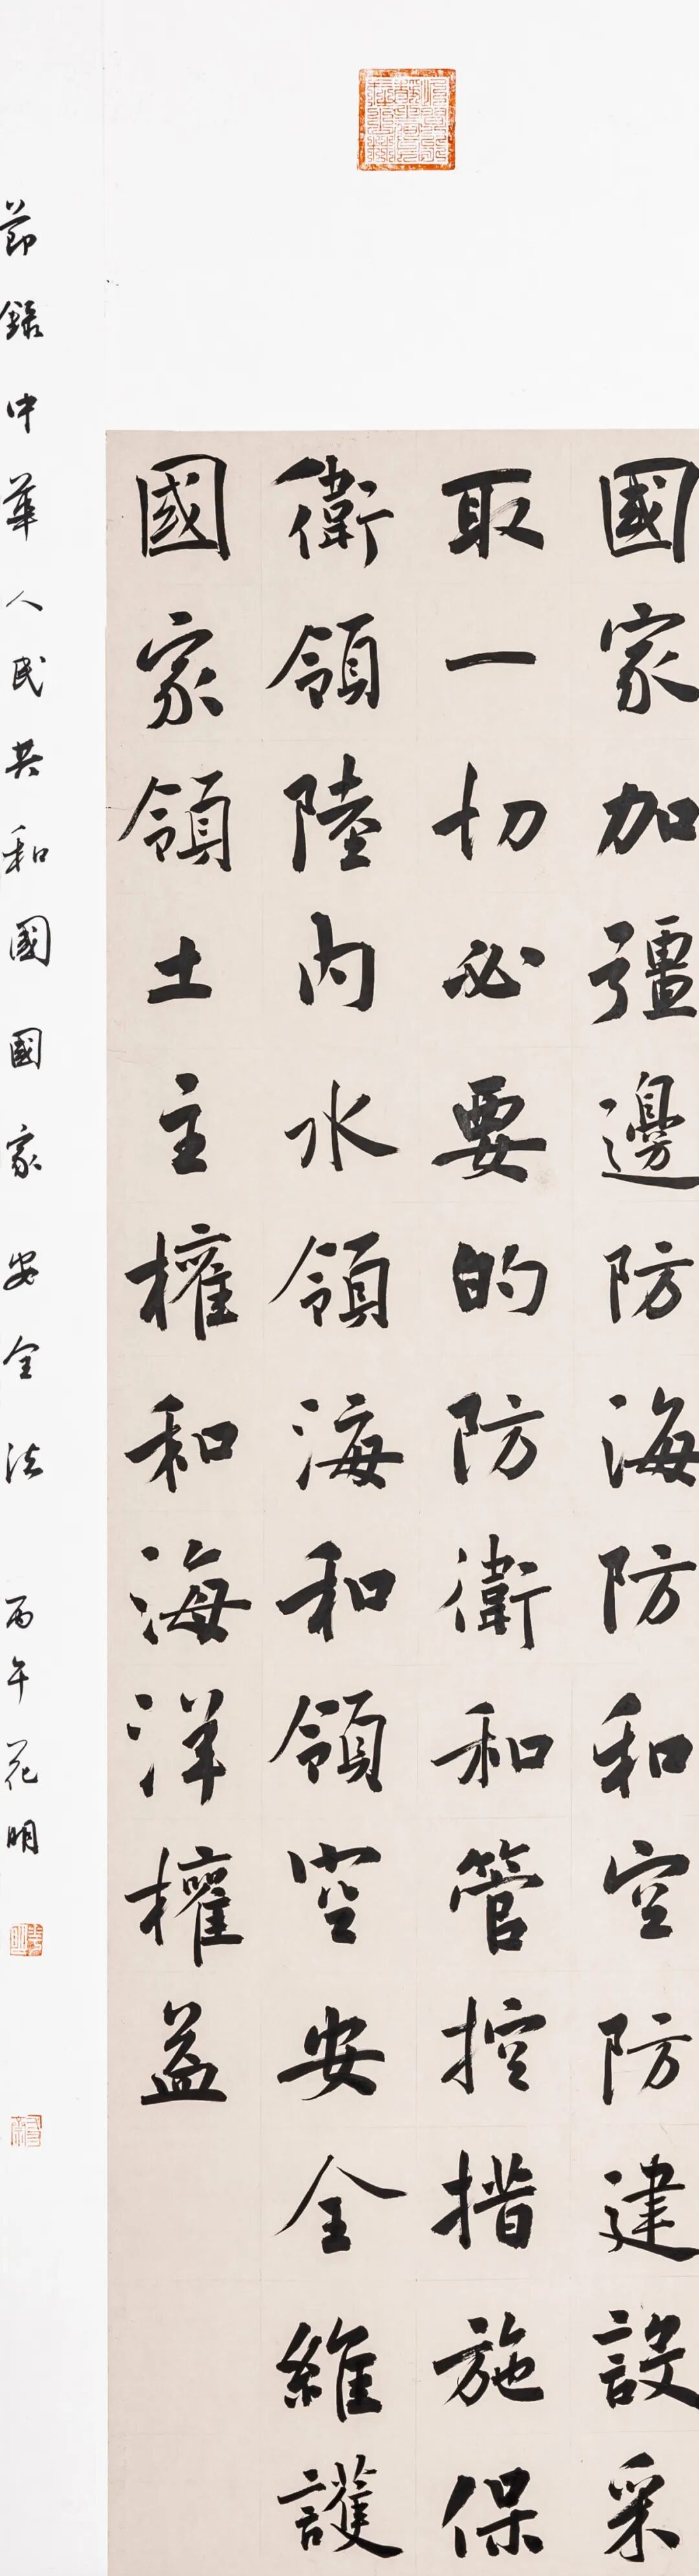 國家加彊邊防海防和空防建設采
取一切必要的防衛和管控措施保
衛領陸内水領海和領空安全維護
國家領土主權和海洋權益
節錄中華人民共和國國家安全法 丙午花明